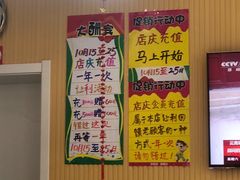 大酬宾
10月15至25
店庆充值
一年一次
让利活动
再等一年
10月15至25
促销行动中
店庆充值
马上开始
10月15至25日
促销行动中
店庆会员充值
属于本店让利回
馈老顾客的一种
方式一年一次
请勿错过!
CCTV